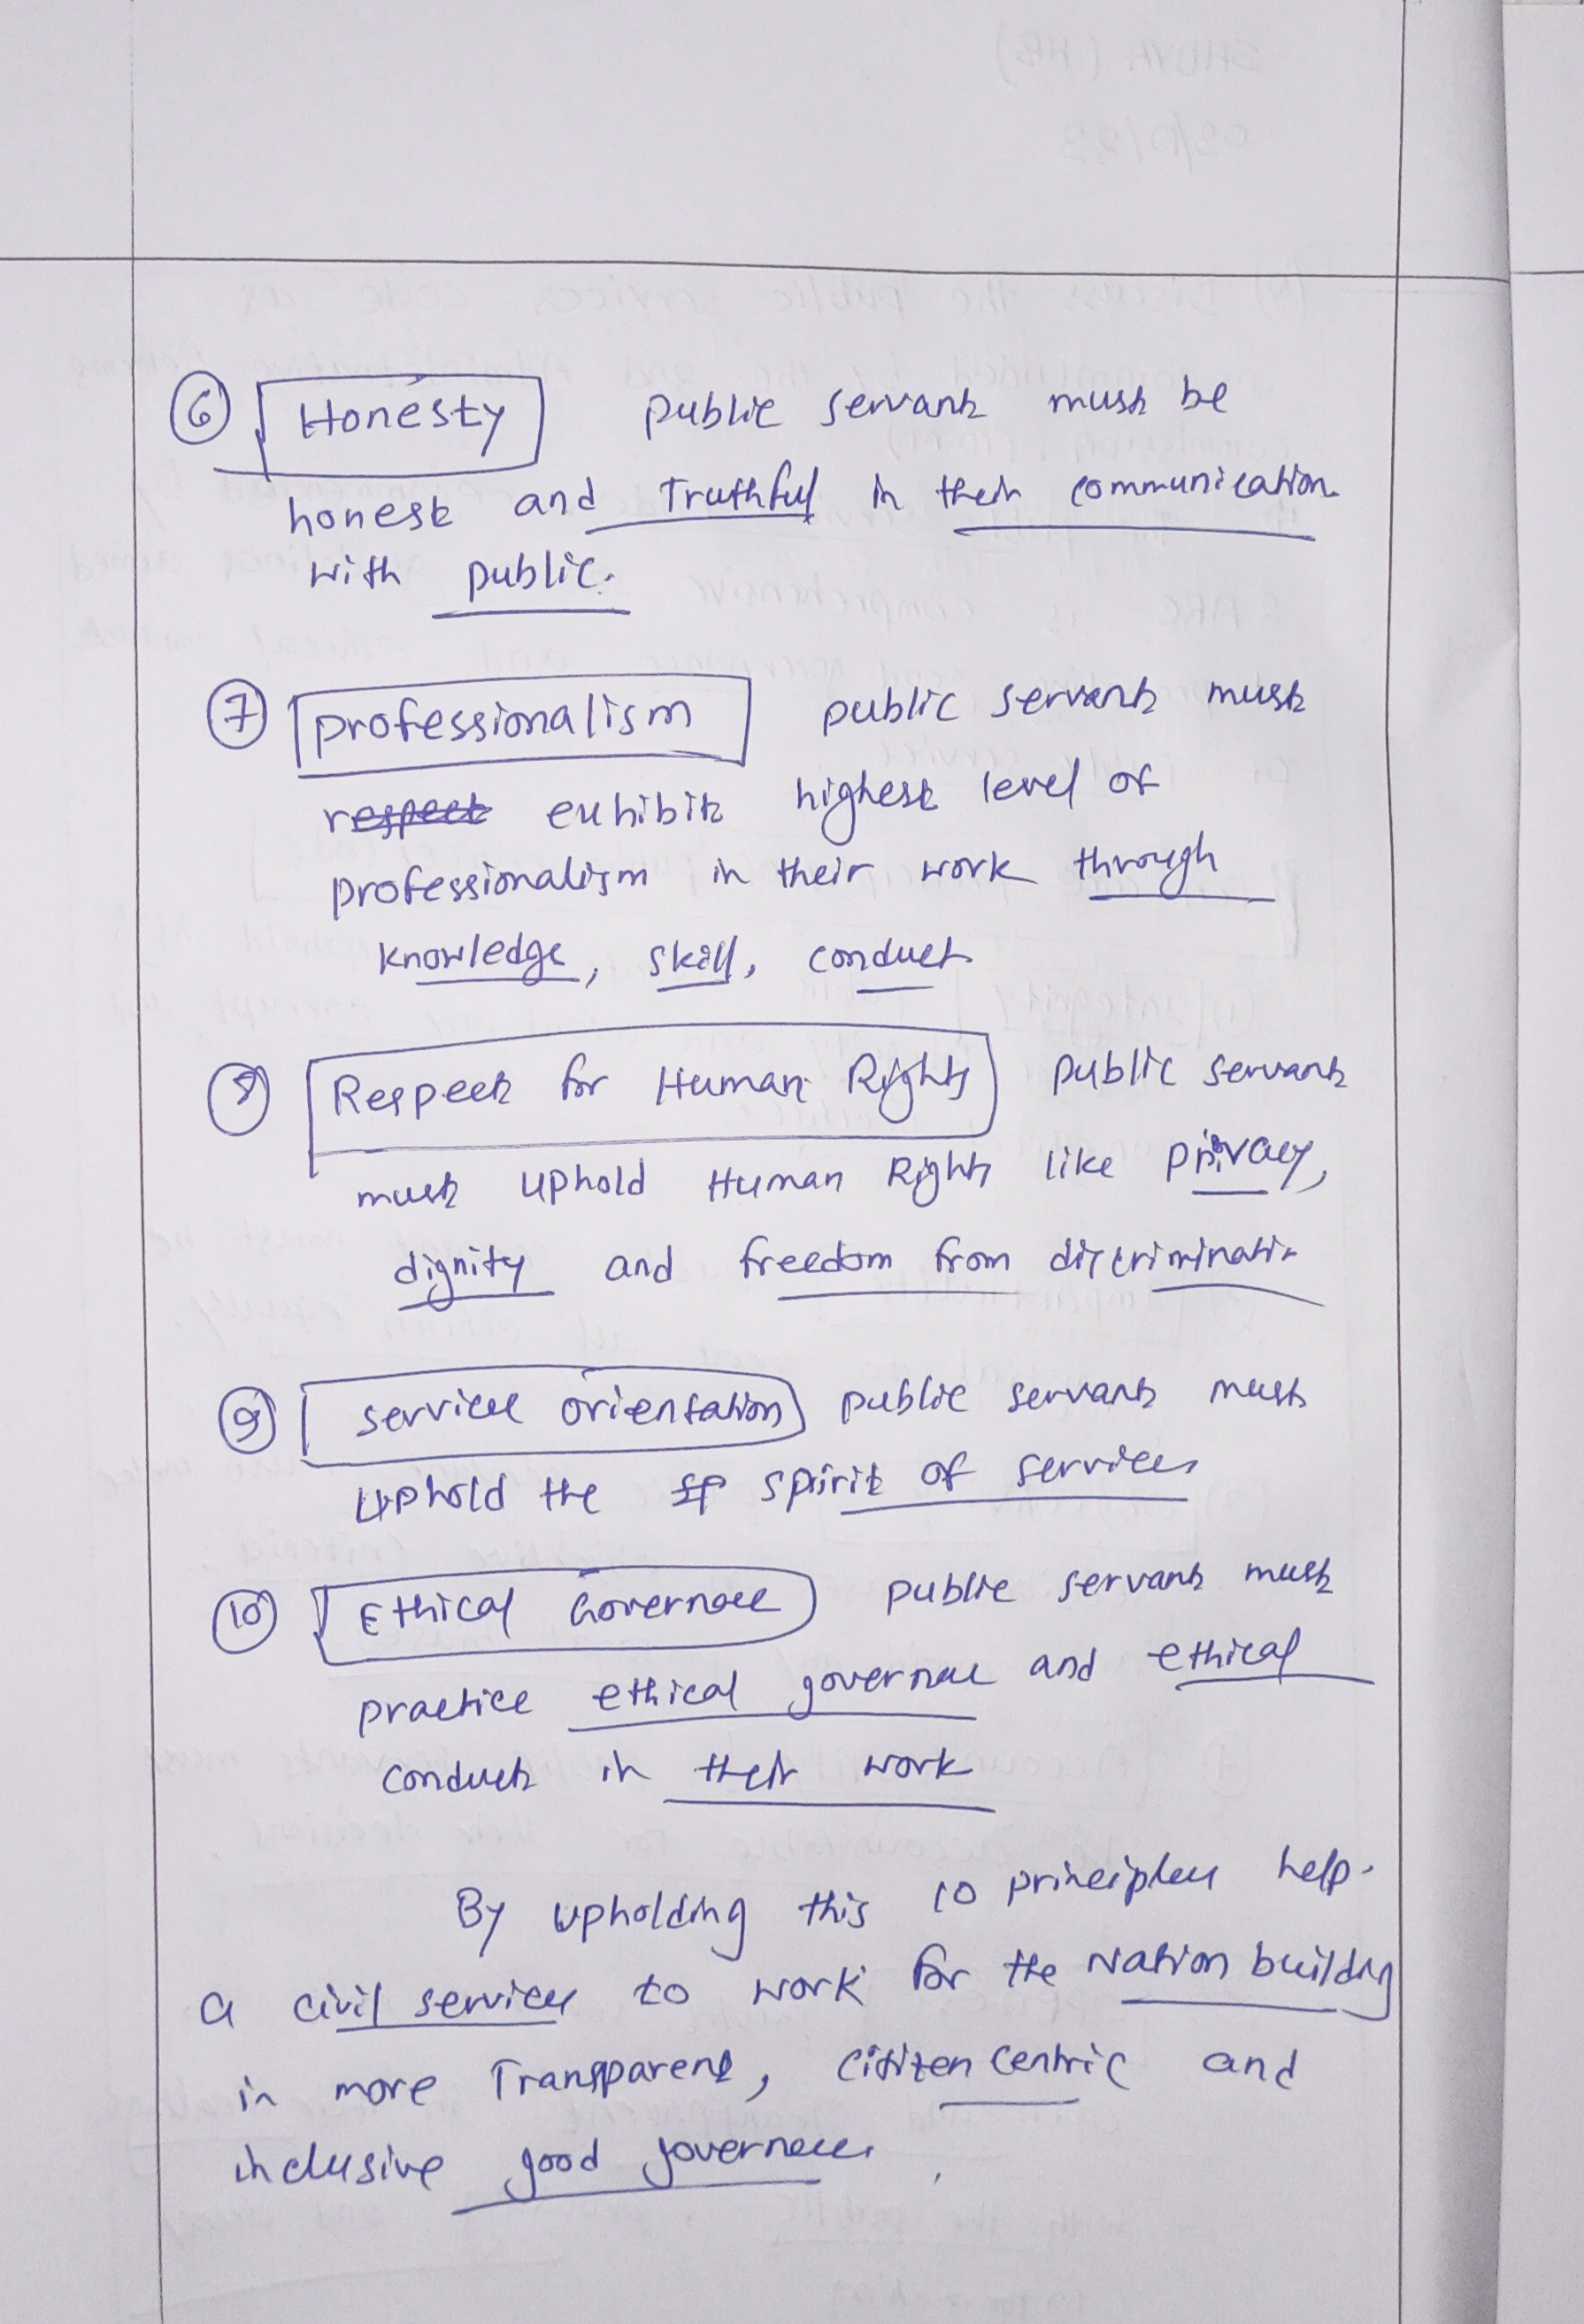 6 Honesty public servant must be
honest and Truthful in their communication
with public.
7 professionalism public servant must
respect exhibit highest level of
professionalism in their work through
knowledge, skill, conduct
8 Respect for Human Rights public servant
must uphold Human Rights like privacy,
dignity and freedom from discrimination
9 service orientation public servant must
uphold the sp spirit of services
10 Ethical Governace public servant must
practice ethical governace and ethical
conduct in their work
By upholding this 10 principles help
a civil services to work for the Nation building
in more Transparent, Citizen Centric and
inclusive good governace